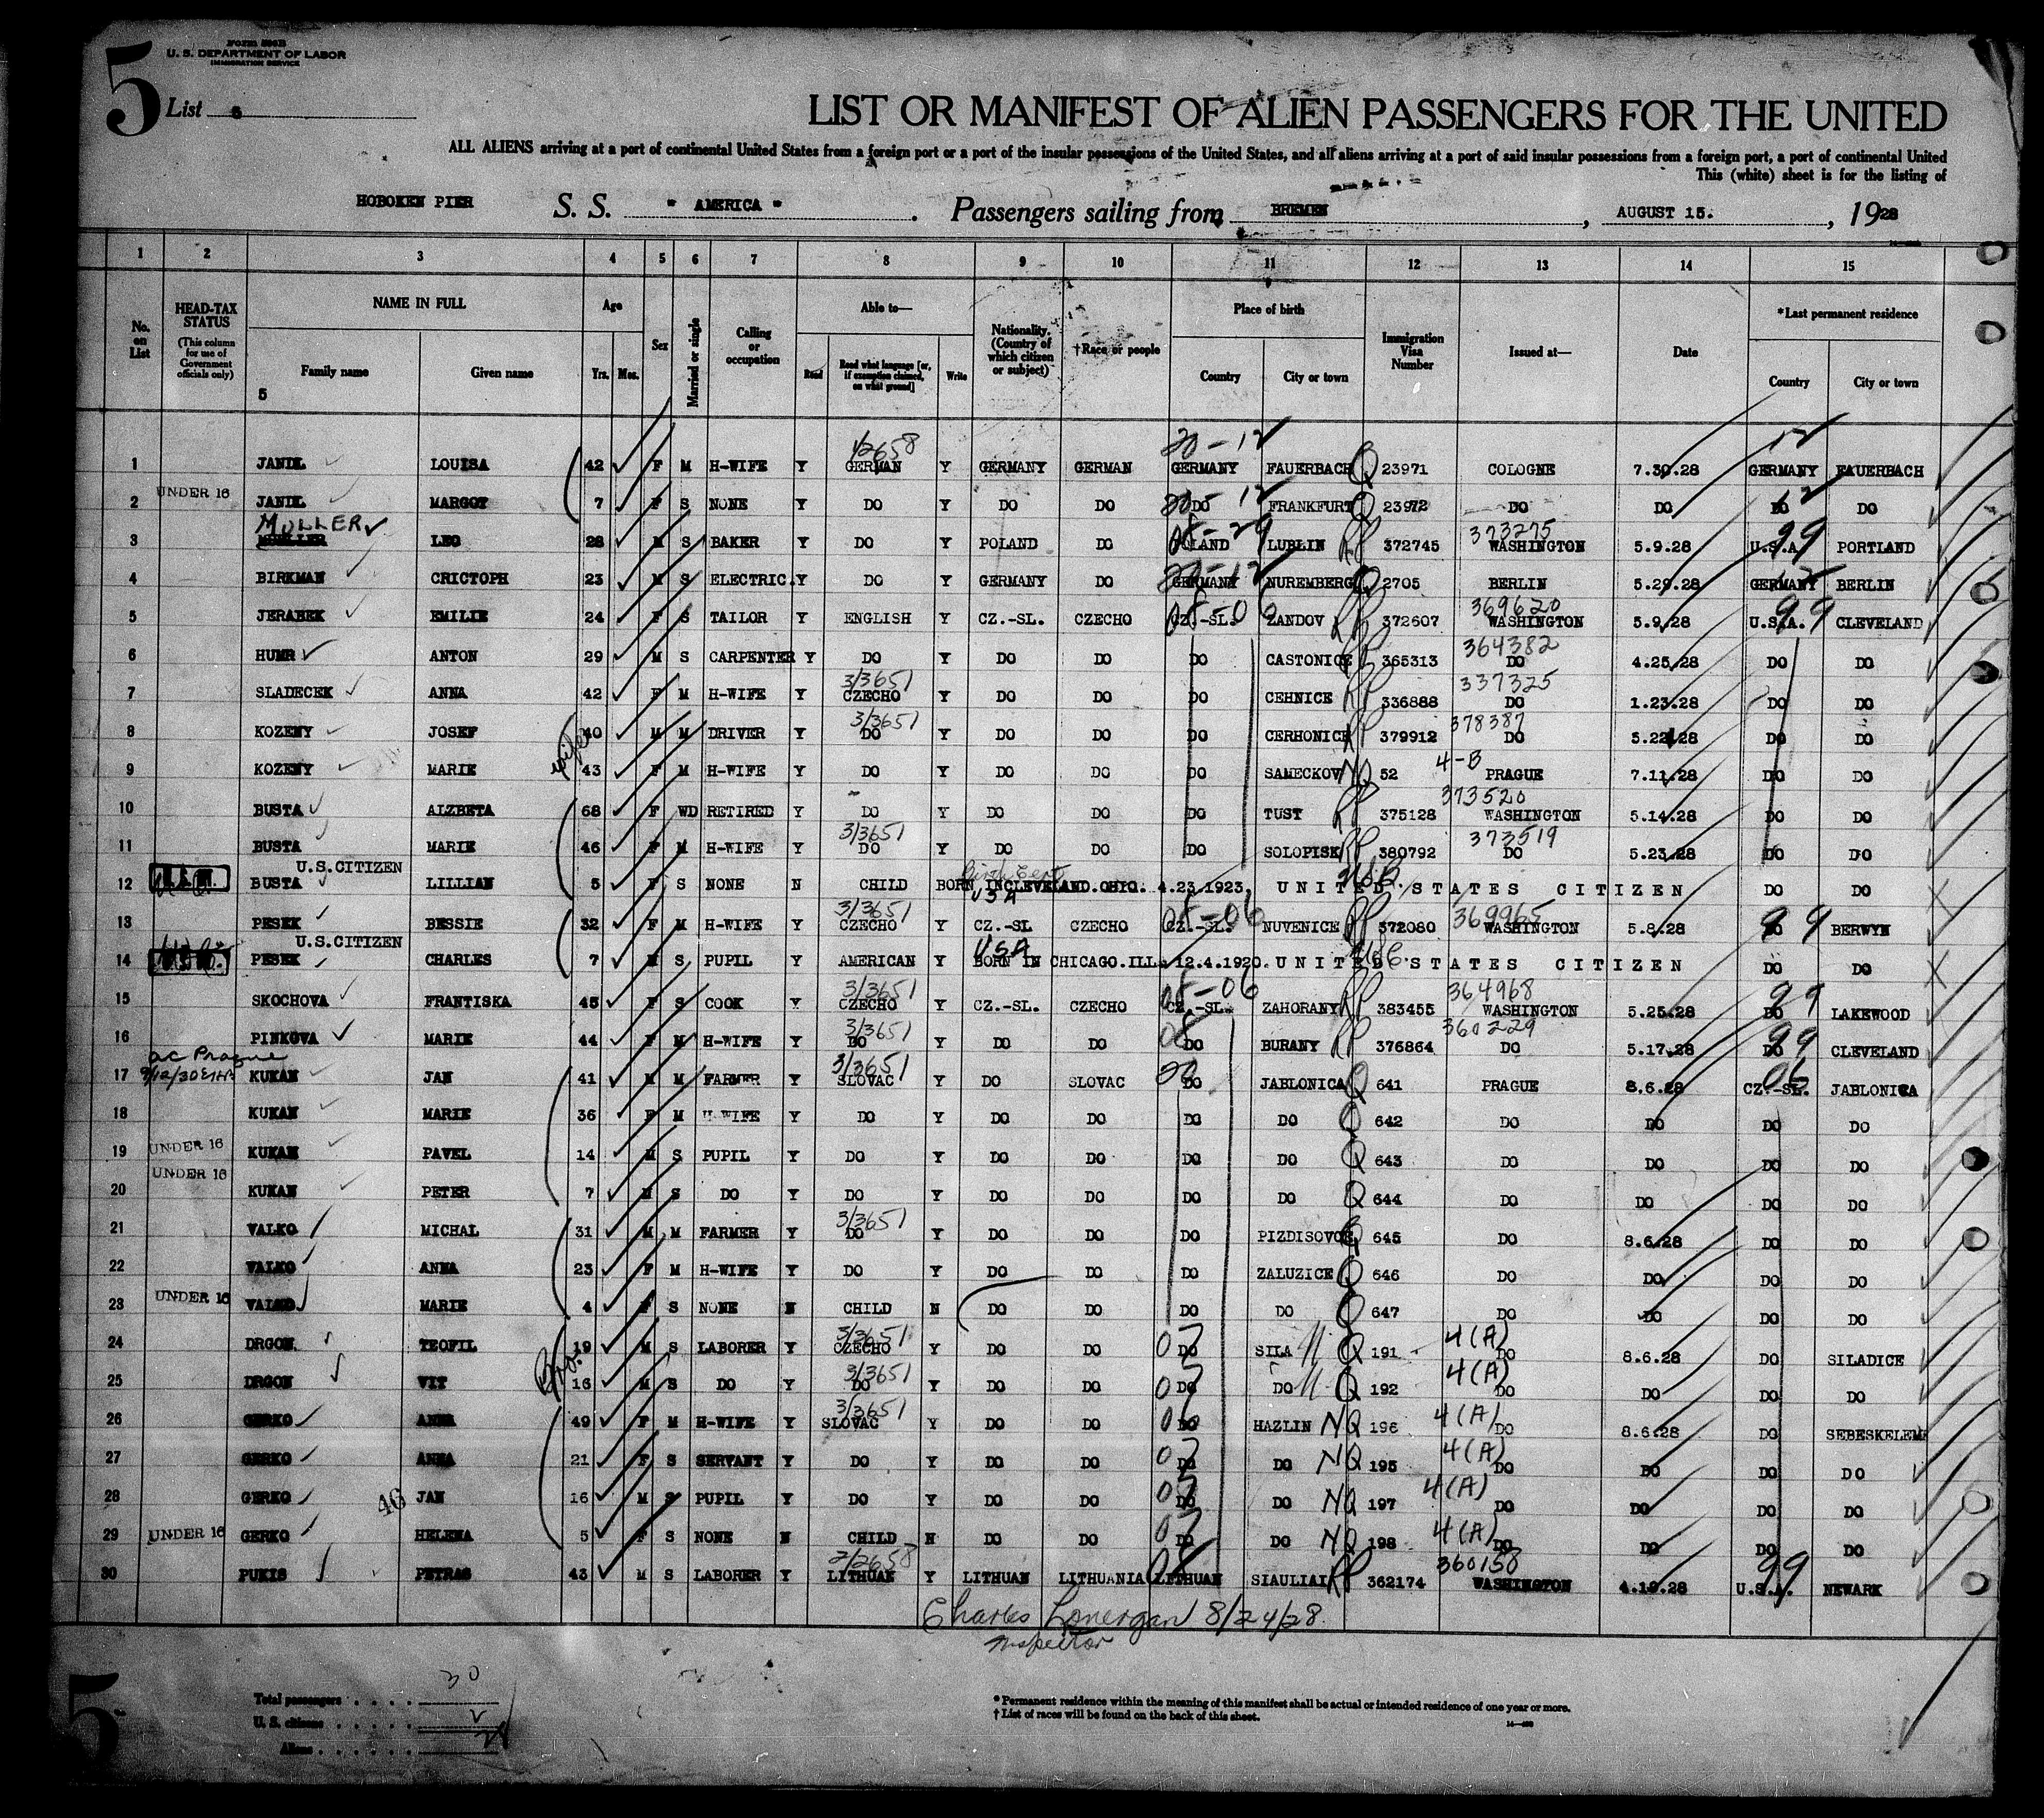 5
Form 500B
U. S. DEPARTMENT OF LABOR
IMMIGRATION SERVICE
List 5
LIST OR MANIFEST OF ALIEN PASSENGERS FOR THE UNITED
ALL ALIENS arriving at a port of continental United States from a foreign port or a port of the insular possessions of the United States, and all aliens arriving at a port of said insular possessions from a foreign port, a port of continental United
This (white) sheet is for the listing of
HOBOKEN PIER S. S. " AMERICA " . Passengers sailing from BREMEN , AUGUST 15. , 1928
1 2 3 4 5 6 7 8 9 10 11 12 13 14 15
No. on List
HEAD-TAX STATUS (This column for use of Government officials only)
NAME IN FULL
Family name
Given name
5
Age
Yrs. Mos.
Sex
Married or single
Calling or occupation
Able to—
Read
Read what language [or, if exemption claimed, on what ground]
Write
Nationality. (Country of which citizen or subject)
†Race or people
Place of birth
Country
City or town
Immigration Visa Number
Issued at—
Date
*Last permanent residence
Country
City or town
12658 20-12 12
1 JANDL LOUISA 42 F M H-WIFE Y GERMAN Y GERMANY GERMAN GERMANY FAUERBACH Q 23971 COLOGNE 7.30.28 GERMANY FAUERBACH
2 UNDER 16 JANDL MARGOT 7 F S NONE Y DO Y DO DO DO 20-12 FRANKFURT Q 23972 DO DO DO 12 DO
MULLER 373275
3 MUELLER LEO 28 M S BAKER Y DO Y POLAND DO POLAND 08-29 LUBLIN RP 372745 WASHINGTON 5.9.28 U.S.A. 99 PORTLAND
4 BIRKMAN CRICTOPH 23 M S ELECTRIC. Y DO Y GERMANY DO GERMANY 20-12 NUREMBERG Q 2705 BERLIN 5.29.28 GERMANY 12 BERLIN
369620
5 JERABEK EMILIE 24 F S TAILOR Y ENGLISH Y CZ.-SL. CZECHO CZ.-SL. 08-06 ZANDOV RP 372607 WASHINGTON 5.9.28 U.S.A. 99 CLEVELAND
364382
6 HUMR ANTON 29 M S CARPENTER Y DO Y DO DO DO CASTONICE RP 365313 DO 4.25.28 DO DO
3/3651 337325
7 SLADECEK ANNA 42 F M H-WIFE Y CZECHO Y DO DO DO CEHNICE RP 336888 DO 1.23.28 DO DO
3/3651 378387
8 KOZENY JOSEF 40 M M DRIVER Y DO Y DO DO DO CERHONICE RP 379912 DO 5.22.28 DO DO
wife 4-B
9 KOZENY MARIE 43 F M H-WIFE Y DO Y DO DO DO SAMECKOV NQ 52 PRAGUE 7.11.28 DO DO
373520
10 BUSTA ALZBETA 68 F WD RETIRED Y DO Y DO DO DO TUST RP 375128 WASHINGTON 5.14.28 DO DO
3/3651 373519
11 BUSTA MARIE 46 F M H-WIFE Y DO Y DO DO DO SOLOPISK RP 380792 DO 5.23.28 DO DO
U.S.CITIZEN Birth Cert
12 BUSTA LILLIAN 5 F S NONE N CHILD BORN IN CLEVELAND.OHIO. 4.23.1923, UNITED STATES CITIZEN DO DO
USA
3/3651 369965
13 PESEK BESSIE 32 F M H-WIFE Y CZECHO Y CZ.-SL CZECHO CZ.-SL. 08-06 NUVENICE RP 372080 WASHINGTON 5.8.28 DO 99 BERWYN
U.S.CITIZEN USA
14 PESEK CHARLES 7 M S PUPIL Y AMERICAN Y BORN IN CHICAGO.ILL. 12.4.1920. UNITED STATES CITIZEN DO DO
3/3651 364968
15 SKOCHOVA FRANTISKA 45 F S COOK Y CZECHO Y CZ.-SL. CZECHO CZ.-SL. 08-06 ZAHORANY RP 383455 WASHINGTON 5.25.28 DO 99 LAKEWOOD
3/3651 360229
16 PINKOVA MARIE 44 F M H-WIFE Y DO Y DO DO DO 08 BURANY RP 376864 DO 5.17.28 DO 99 CLEVELAND
ac Prague 3/3651
17 KUKAN JAN 41 M M FARMER Y SLOVAC Y DO SLOVAC DO 20 JABLONICA Q 641 PRAGUE 8.6.28 CZ.-SL. 06 JABLONICA
18 KUKAN MARIE 36 F M H-WIFE Y DO Y DO DO DO DO Q 642 DO DO DO DO
19 UNDER 16 KUKAN PAVEL 14 M S PUPIL Y DO Y DO DO DO DO Q 643 DO DO DO DO
20 UNDER 16 KUKAN PETER 7 M S DO Y DO Y DO DO DO DO Q 644 DO DO DO DO
3/3651
21 VALKO MICHAL 31 M M FARMER Y DO Y DO DO DO PIZDISOVCE Q 645 DO 8.6.28 DO DO
22 VALKO ANNA 23 F M H-WIFE Y DO Y DO DO DO ZALUZICE Q 646 DO DO DO DO
23 UNDER 16 VALKO MARIE 4 F S NONE N CHILD N DO DO DO DO Q 647 DO DO DO DO
3/3651 4(A)
24 DRGON. TEOFIL 19 M S LABORER Y CZECHO Y DO DO DO 07 SILA Q 191 DO 8.6.28 DO SILADICE
Bro. 3/3651 4(A)
25 DRGON VIT 16 M S DO Y DO Y DO DO DO 07 DO Q 192 DO DO DO DO
3/3651 4(A)
26 GERKO ANNA 49 F M H-WIFE Y SLOVAC Y DO DO DO 07 HAZLIN NQ 196 DO 8.6.28 DO SEBESKELEM
4(A)
27 GERKO ANNA 21 F S SERVANT Y DO Y DO DO DO 07 DO NQ 195 DO DO DO DO
4(A)
28 GERKO 46 JAN 16 M S PUPIL Y DO Y DO DO DO 07 DO NQ 197 DO DO DO DO
4(A)
29 UNDER 16 GERKO HELENA 5 F S NONE N CHILD N DO DO DO 07 DO NQ 198 DO DO DO DO
2/2658 360158
30 PUKIS PETRAS 43 M S LABORER Y LITHUAN Y LITHUAN LITHUANIA LITHUAN 08 SIAULIAI RP 362174 WASHINGTON 4.19.28 U.S.A. 99 NEWARK
Charles Lonergan 8/24/28
Inspector
5
Total passengers . . . . 30
U. S. citizens . . . . . 2
Aliens . . . . . . 28
* Permanent residence within the meaning of this manifest shall be actual or intended residence of one year or more.
† List of races will be found on the back of this sheet.